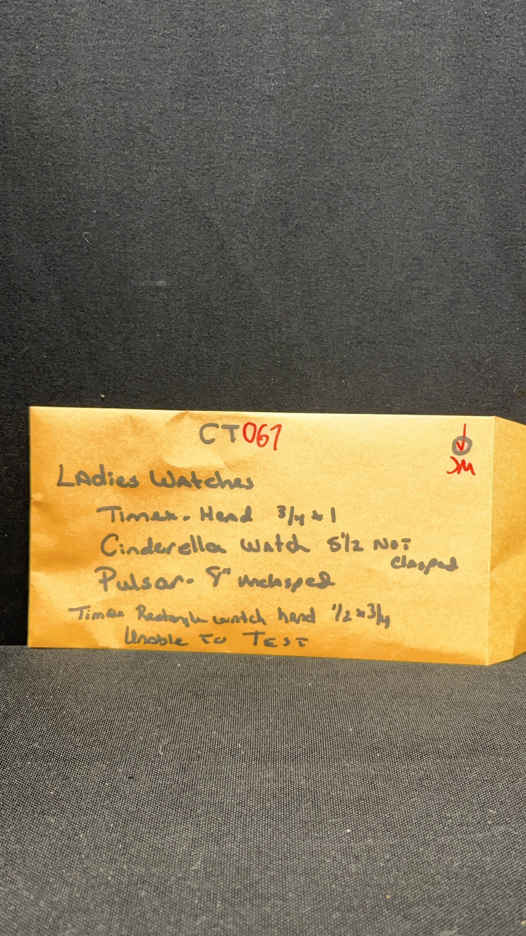 CT067
JM
Ladies Watches
Timex - Head 3/4 x 1
Cinderella Watch 5 1/2 NOT
Clasped
Pulsar - 8" unclasped
Timex Rectangle watch head 1/2 x 3/4
Unable TO TEST